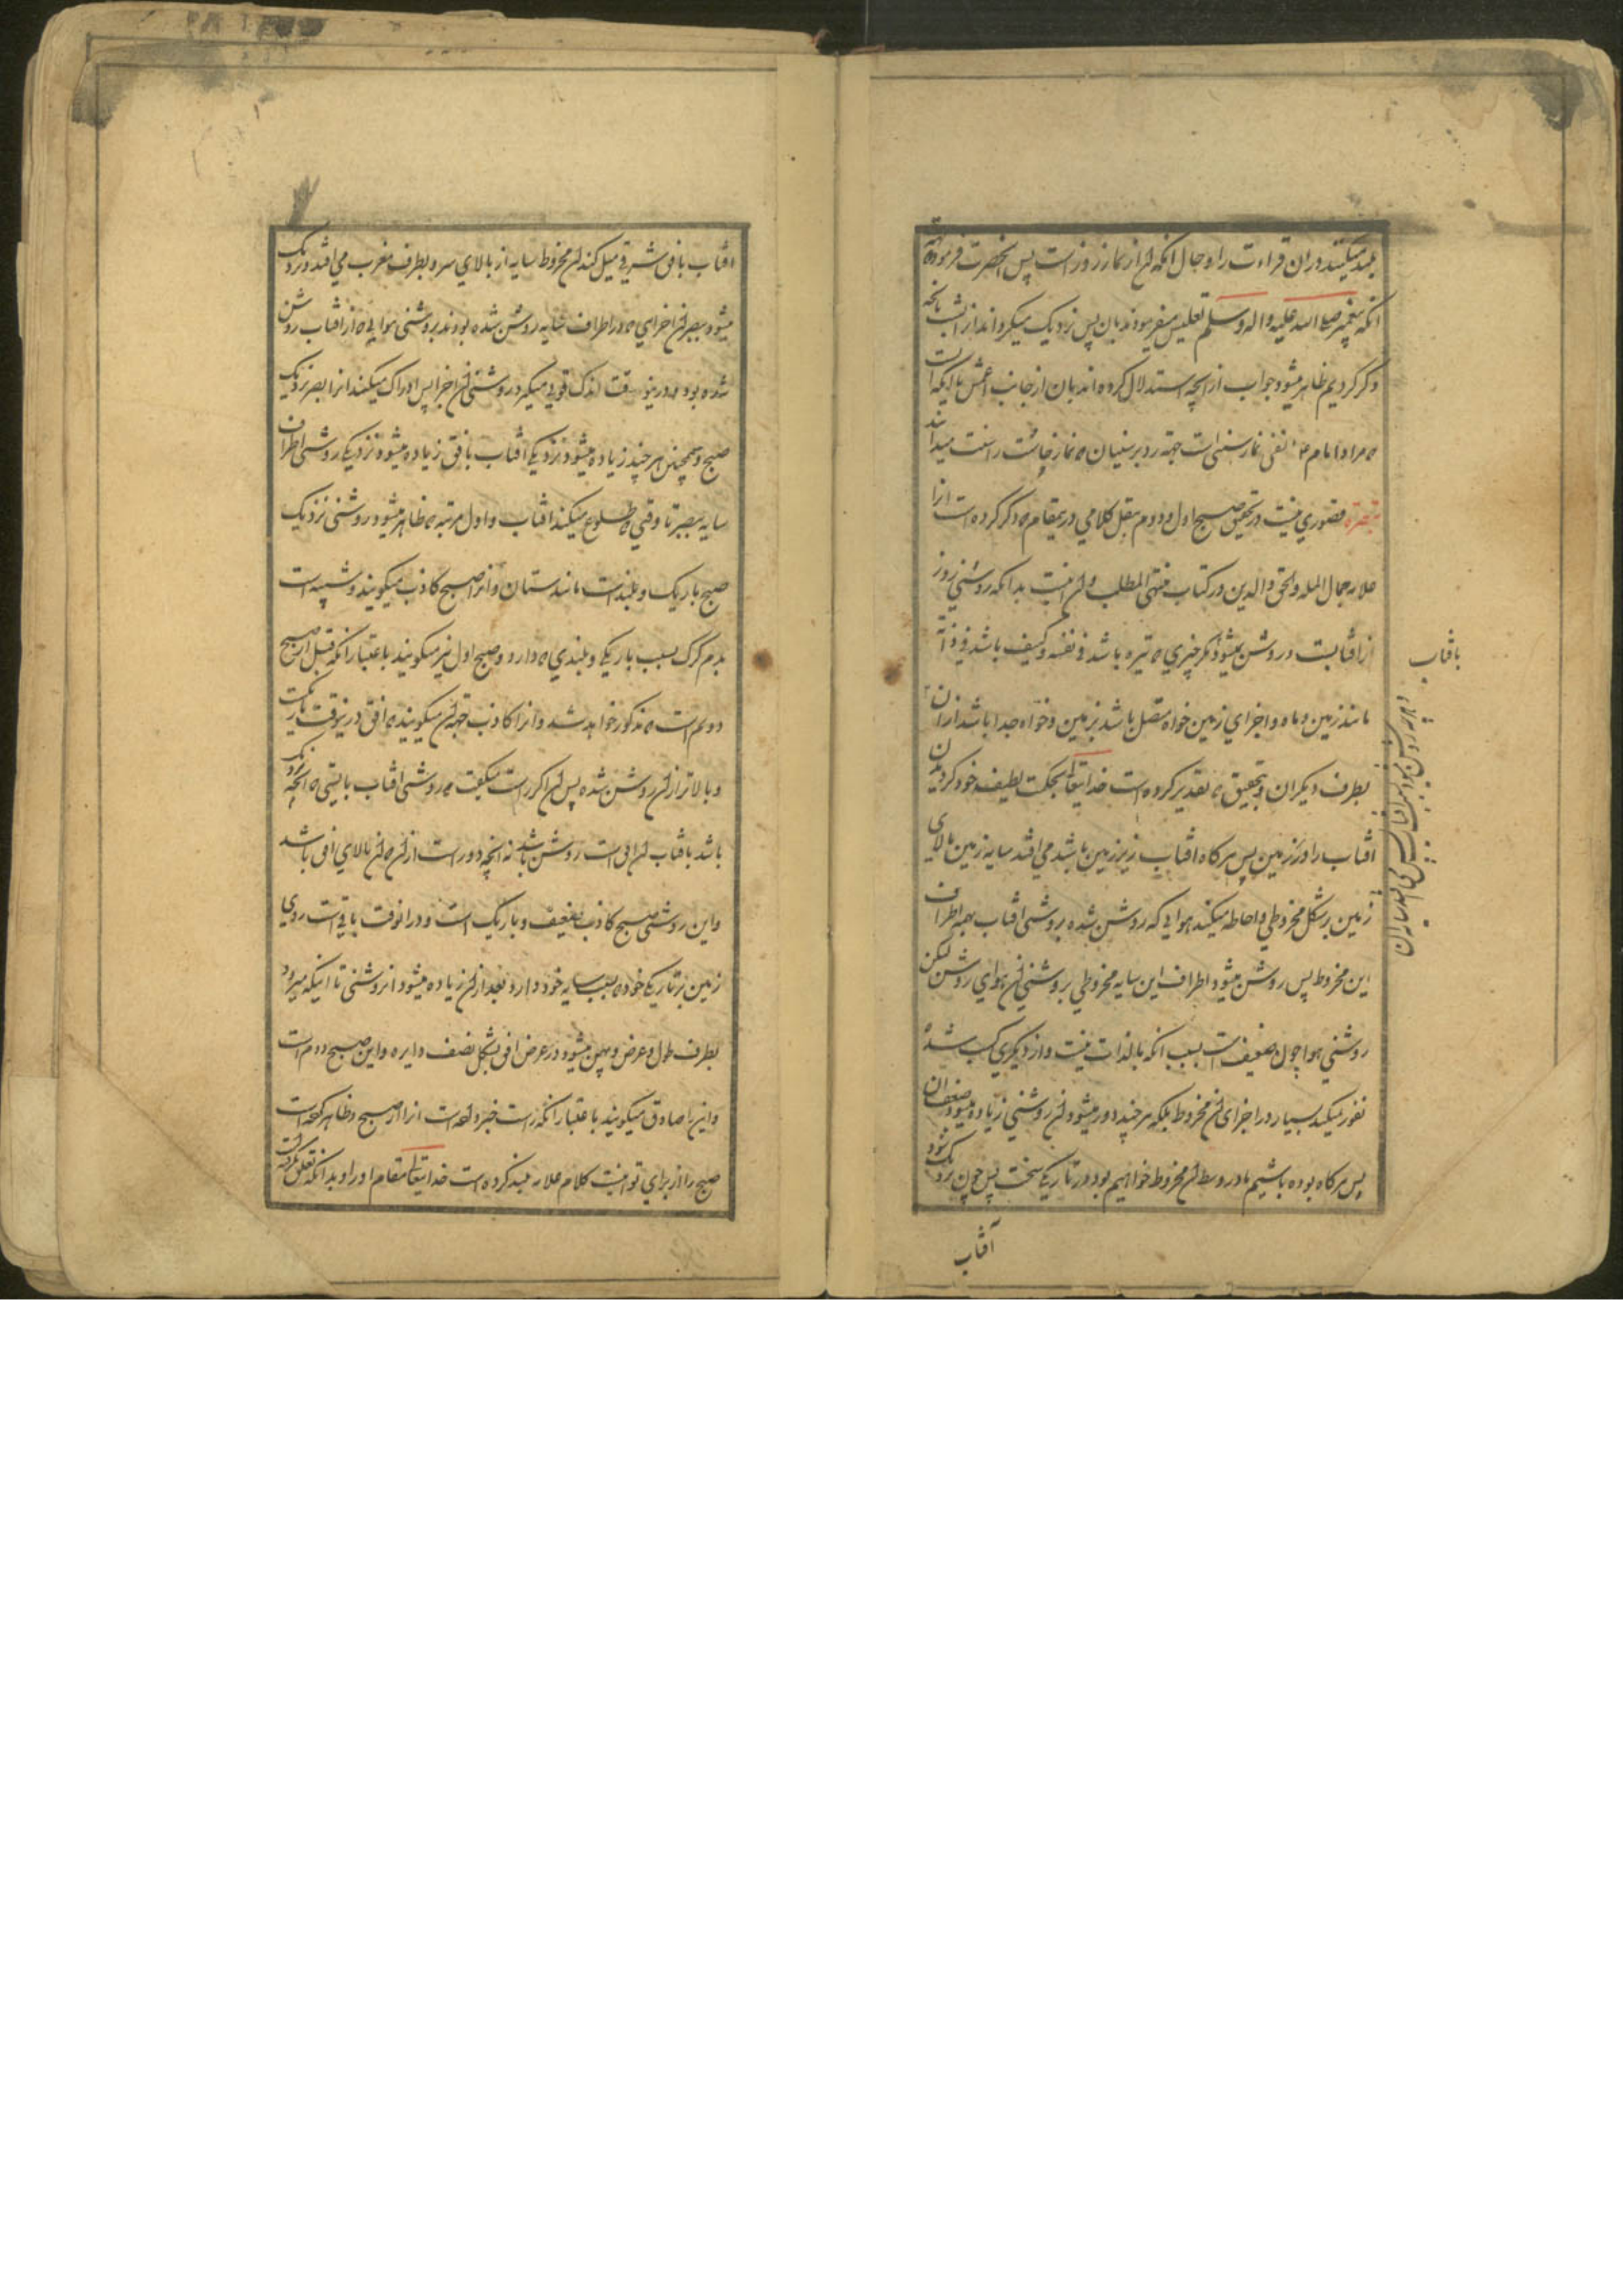 بلند میکنند دران قراءت را و حال انکه ان از نماز روز است پس انحضرت فرموده
انکه پیغمبر صلی الله علیه واله وسلم تغلیس میفرمودند بان پس نزدیک میکرد انرا بشب بانچه
ذکر کردیم ظاهر میشود جواب از انچه استدلال کرده اند بان از جانب اعمش با انکه
که مراد امام نفی نماز سنتی است جهة رد بر سنیان که نماز چاشت را سنت میدانند
تبصره قصوری نیست در تحقیق صبح اول و دوم بنقل کلامی درینمقام که ذکر کرده است انرا
علامه جمال المله والحق والدین در کتاب منتهی المطلب و ان اینست بدانکه روشنی روز
از افتابست و روشن نمیشود مکر چیزی که تیره باشد فی نفسه و کثیف باشد فی ذاته
مانند زمین و ماه و اجزای زمین خواه متصل باشد بزمین و خواه جدا باشد ازان
بطرف دیکران و بتحقیق که تقدیر کرده است خدایتعالی بحکمت لطیفه خود کردیدن
افتاب را دور زمین پس هر کاه افتاب زیر زمین باشد می افتد سایه زمین بالای
زمین بر شکل مخروطی و احاطه میکند هوایی که روشن شده بروشنی افتاب بهمه اطراف
این مخروط پس روشن میشود اطراف این سایه مخروطی بروشنی ان هوای روشن لیکن
روشنی هوا چون ضعیف است بسبب انکه بالذات نیست و از دیکری کسب شده
نفوذ نمیکند بسیار در اجزای ان مخروط بلکه هر چند دور میشود ان روشنی زیاده میشود ضعف ان
پس هر کاه بوده باشیم ما در وسط ان مخروط خواهیم بود در تاریکی سخت پس چون نزدیک شود
آفتاب
بافتاب
افتاب بافق شرقی میل کند ان مخروط سایه از بالای سر و بطرف مغرب می افتد و نزدیک
میشود ببصر ان اجزای که در اطراف سایه روشن شده بودند بروشنی هوایی که از افتاب روشن
شده بود و درینوقت اندک قوتی میکیرد روشنی ان اجزا پس ادراک میکند انرا بصر نزدیک
صبح و همچنین هر چند زیاده میشود نزدیکی افتاب بافق زیاده میشود نزدیکی روشنی اطراف
سایه ببصر تا وقتی که طلوع میکند افتاب و اول مرتبه که ظاهر میشود روشنی نزدیک
صبح باریک و بلند است مانند ستمان و انرا صبح کاذب میکویند و شبیه است
بدم کرک بسبب باریکی و بلندی که دارد و صبح اول نیز میکویند باعتبار انکه قبل از صبح
دویم است که مذکور خواهد شد و انرا کاذب جهة ان میکویند که افق درینوقت تاریکست
و بالاتر از ان روشن شده پس ان اکر راست میکفت که روشنی افتاب بایستی که انچه نزدیک
باشد بافتاب که ان افق است روشن باشد نه انچه دور است از ان که ان بالای افق باشد
و این روشنی صبح کاذب ضعیف و باریک است و در انوقت باقی است روی
زمین بر تاریکی خود که بسبب سایه خود دارد و بعد از ان زیاده میشود ان روشنی تا اینکه میرود
بطرف طول و عرض و پهن میشود در عرض افق بشکل نصف دایره و این صبح دوم است
و این را صادق میکویند باعتبار انکه راست خبر داده است انرا از صبح و ظاهر کرده است
صبح را از برای تو اینست کلام علامه بلند کرده است خدایتعالی مقام او را و بدانکه تعلق کرفته